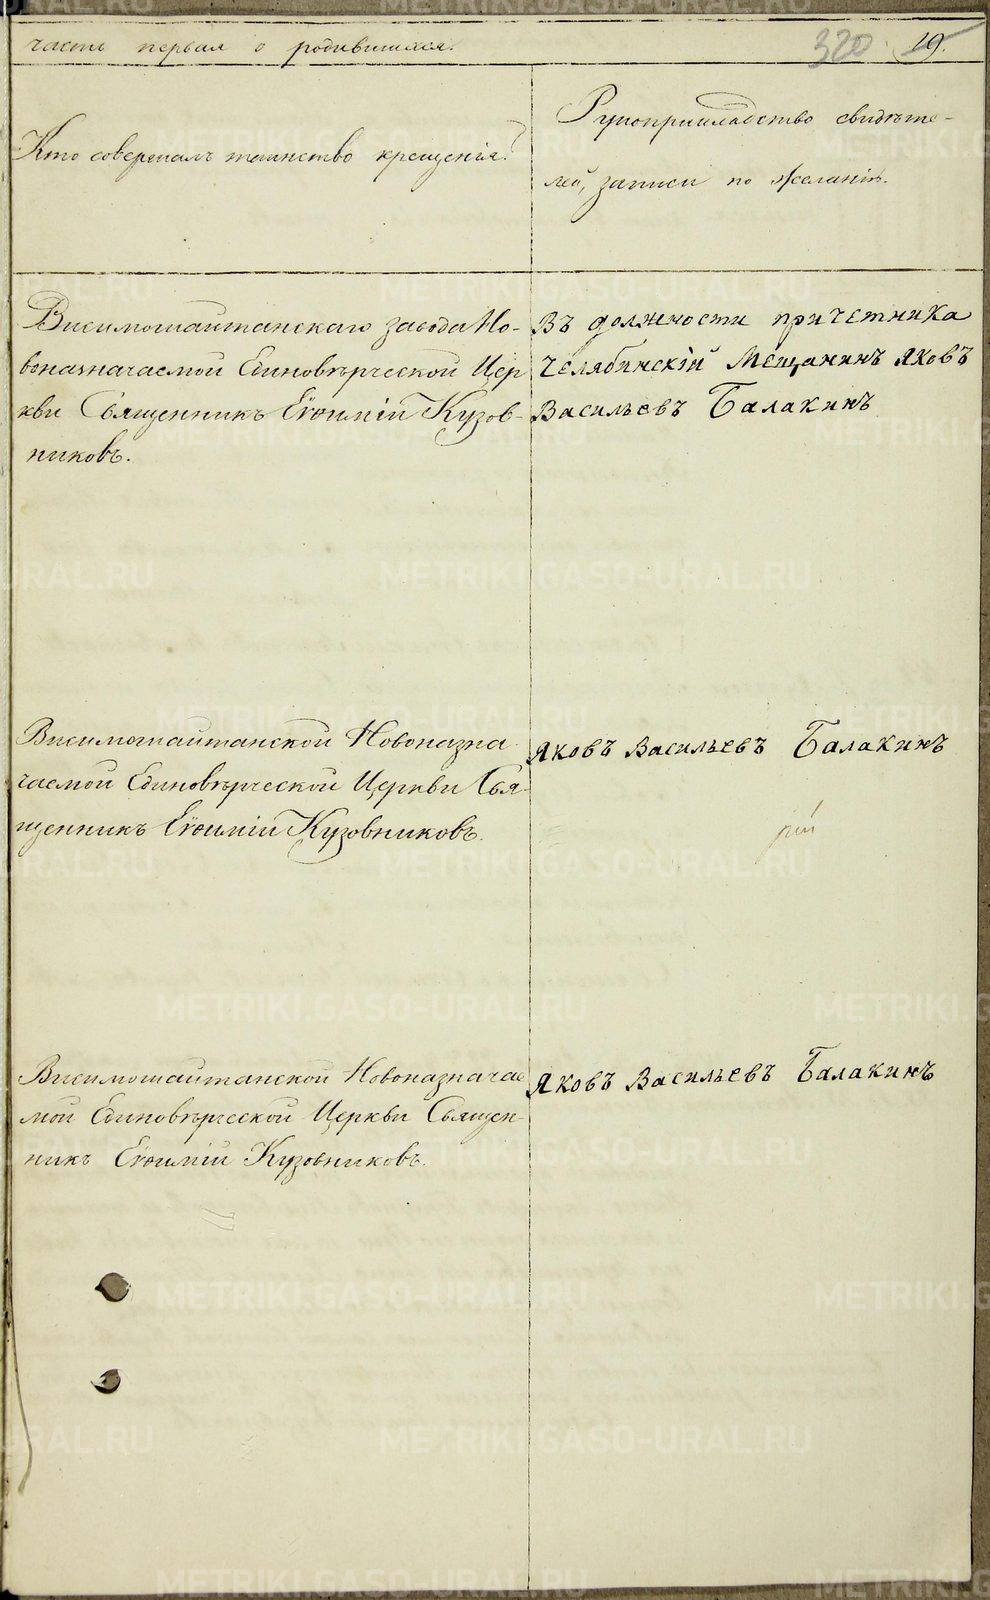 часть первая о родившихся.
320 19.
Кто совершалъ таинство крещенія?
Рукоприкладство свидѣте-
лей, записи по желанію.
Висимошайтанскаго завода Но-
воназначаемой Единовѣрческой Цер
кви Священникъ Еѵѳимій Кузов-
никовъ.
Въ должности причетника
Челябинскій Мещанинъ Яковъ
Васильевъ Балакинъ
Висимошайтанской Новоназна
чаемой Единовѣрческой Церкви Свя-
щенникъ Еѵѳимій Кузовниковъ.
Яковъ Васильевъ Балакинъ
рій
Висимошайтанской Новоназначае
мой Единовѣрческой Церкви Священ-
никъ Еѵѳимій Кузовниковъ.
Яковъ Васильевъ Балакинъ
METRIKI.GASO-URAL.RU